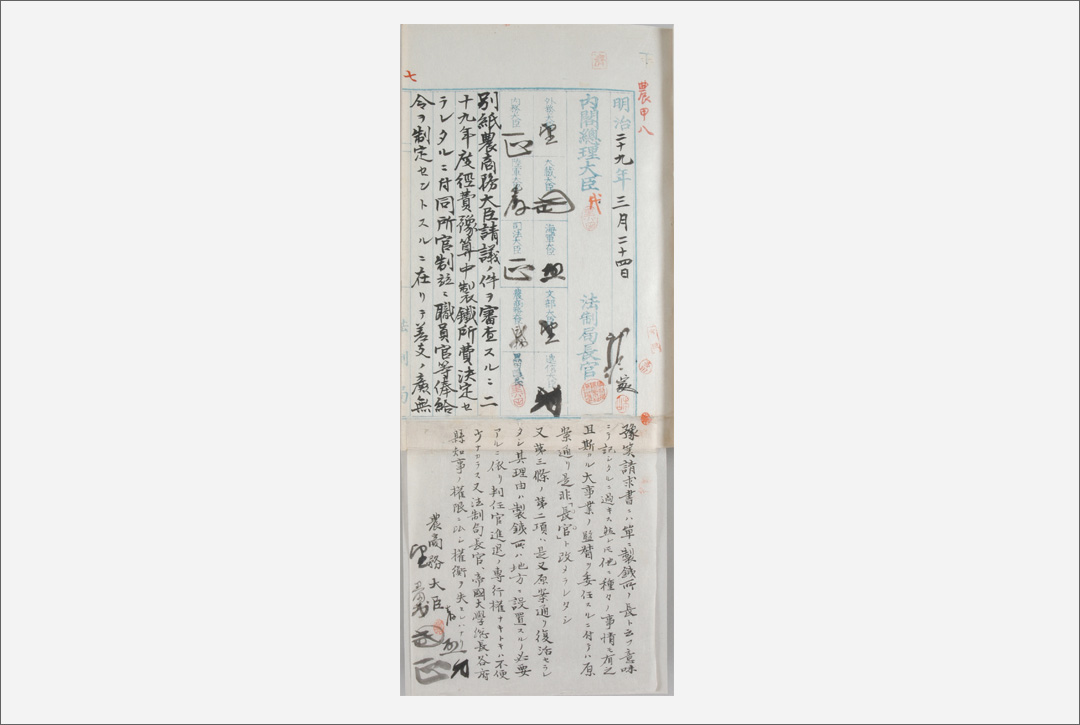 農甲八
明治二十九年三月二十四日
内閣總理大臣
法制局長官
外務大臣
大藏大臣
海軍大臣
文部大臣
遞信大臣
内務大臣
陸軍大臣
司法大臣
農商務大臣
七
別紙農商務大臣請議ノ件ヲ審査スルニ二
十九年度經費豫算中製鐵所費決定セ
ラレタルニ付同所官制竝ニ職員官等俸給
令ヲ制定セントスルニ在リテ善支ノ廉無
豫筭請求書ニハ單ニ製鐵所ノ長ト云フ意味
ニテ記シタルニ過キス然レトモ他ニ種々ノ事情モ有之
且斯カル大事業ノ監督ヲ委任スルニ付テハ原
案通リ是非「長官」ト改メラレタシ
又第三條ノ第二項ハ是又原案通リ復活セラレ
タシ其理由ハ製鐵所ハ地方ニ設置スルノ必要
アルニ依リ判任官進退ノ專行權ナキトキハ不便
又法制局長官、帝國大學總長各府
縣知事ノ權限ニ比シ權衡ヲ失スレハナリ
農商務大臣